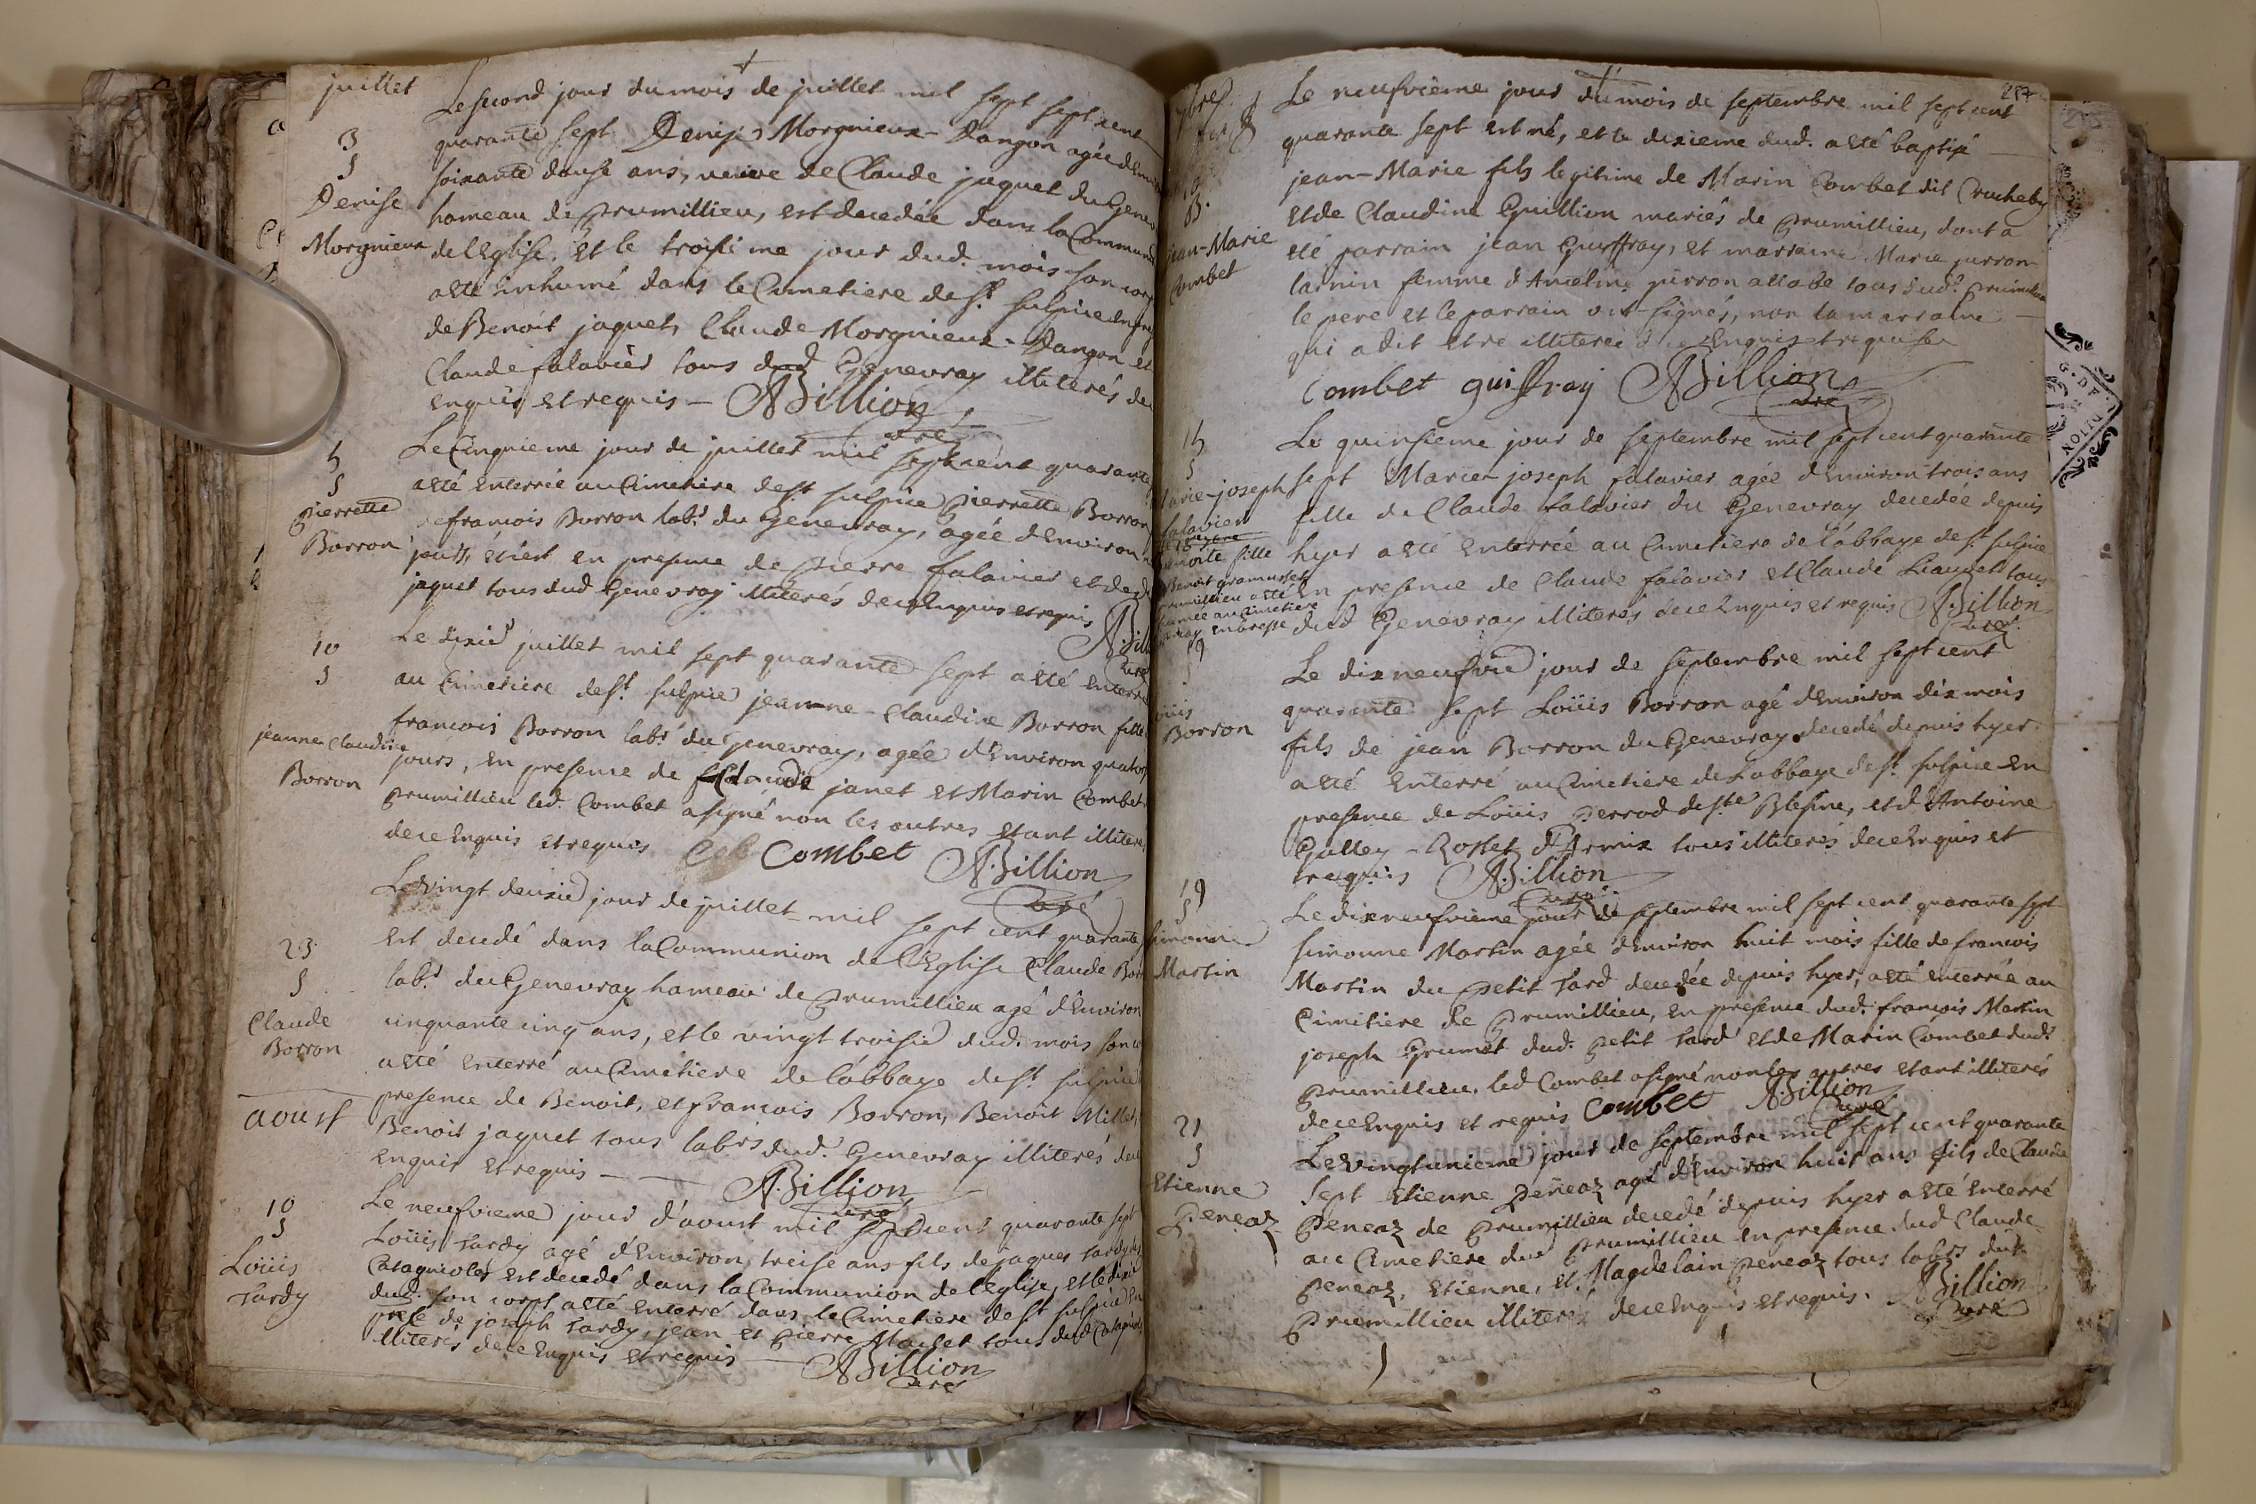 juillet
Le second jour du mois de juillet mil sept cent
quarante sept Denise Morgnieux-Dangon agée d'Env
soixante douse ans, veuve de Claude jaquet du Gene
hameau de Prumillieu, est decedée dans la Commun
de l'Eglise, et le troisi me jour dud. mois son cor
a eté inhumé dans le Cimetiere de st. sulpice En pre
de Benoit jaquet, Claude Morgnieux-Dangon et
Claude falavier tous dud Genevray illiterés de
enquis et requis — ABillion
curé
3
S
Denise
Morgnieux
Le Cinquieme jour de juillet mil sept cent quarante
a eté Enterrée au Cimetiere de st. sulpice Pierrette Borron
francois Borron labr. du Genevray, agée d'Environ
jours, et c'est en presence de Pierre falavier et de
jaquet tous dud Genevray illiterés de ce Enquis et requis
ABill
Curé
5
S
Pierrette
Borron
Le dixie juillet mil sept quarante sept a eté Enterré
au Cimetiere de st. sulpice jeanne-Claudine Borron fille
francois Borron labr. du Genevray, agée d'Environ quator
jours, En presence de Claude janet et Marin Combet
Prumillieu led. Combet a signé non les autres Etant illiteré
de ce Enquis et requis Combet ABillion
curé
10
S
jeanne Claudine
Borron
Le vingt deuxie jour de juillet mil sept cent quarante
Est decedé dans la Communion de l'Eglise Claude Bor
labr. du Genevray hameau de Prumillieu agé d'Environ
cinquante cinq ans, et le vingt troisie dud. mois son co
a eté Enterré au Cimetiere de l'abbaye de st. sulpice
presence de Benoit, et francois Borron, Benoit Millet,
Benoit jaquet tous labrs dud. Genevray illiterés de
enquis et requis — ABillion
curé
23
S
Claude
Borron
aoust
Le neufvieme jour d'aoust mil sept cent quarante sept
Loüis Tardy agé d'Environ treise ans fils de jaques Tardy
Catagnoles est decedé dans la Communion de l'Eglise, et le dixie
dud. son corps a eté Enterré dans le Cimetiere de st sulpice En
prese de joseph Tardy, jean et Pierre Maulet tous dud Catagnol
illiterés de ce Enquis et requis — ABillion
curé
10
S
Loüis
Tardy
287
Le neufvieme jour du mois de septembre mil sept cent
quarante sept est né, et le dixieme dud. a eté baptisé
jean-Marie fils legitime de Marin Combet dit Crucheby
et de Claudine Guillion mariés de Prumillieu, dont a
eté parrain jean Guiffray, et marraine Marie pirron
larnin femme d'Anselme pirron allobe tous dud. Prumillieu
le pere et le parrain ont signés, non la marraine
qui a dit Etre illiterée de ce Enquise et requise
Combet guiffray ABillion
curé
10
B.
jean-Marie
Combet
Le quinsieme jour de septembre mil sept cent quarante
sept Marie joseph falavier agée d'Environ trois ans
fille de Claude falavier du Genevray decedée depuis
hyer a eté Enterrée au Cimetiere de l'abbaye de st. sulpice
En presence de Claude falavier et Claude Liaudet tous
dud Genevray illiterés de ce Enquis et requis ABillion
curé
15
S
Marie-joseph
falavier
Benoite fille
Benoit gramusset
Prumillieu a eté
au Cimetiere
En bresse
Le dixneufvie jour de septembre mil sept cent
quarante sept Loüis Borron agé d'Environ dix mois
fils de jean Borron du Genevray decedé depuis hyer
a eté Enterré au Cimetiere de l'abbaye de st. sulpice En
presence de Loüis Perrod de ste Blesine, et d'Antoine
Gulley-Rosset d'Armix tous illiterés de ce Enquis et
requis ABillion
curé
19
S
Loüis
Borron
Le dixneufvieme jour de septembre mil sept cent quarante sept
simonne Martin agée d'Environ huit mois fille de francois
Martin du Petit Tard decedée depuis hyer, a eté Enterrée au
Cimitiere de Prumillieu, En presence dud. francois Martin
joseph Grumet dud. Petit Tard et de Marin Combet dud.
Prumillieu, led Combet a signé non les autres Etant illiterés
de ce Enquis et requis Combet ABillion
Curé
19
S
simonne
Martin
Le vingtunieme jour de septembre mil sept cent quarante
sept Etienne Peneaz agé d'Environ huit ans fils de Claude
Peneaz de Prumillieu decedé depuis hyer a eté Enterré
au Cimetiere dud Prumillieu En presence dud Claude
Peneaz, Etienne, et Magdelain Peneaz tous labrs dud.
Prumillieu illiterés de ce Enquis et requis. ABillion
Curé
21
S
Etienne
Peneaz